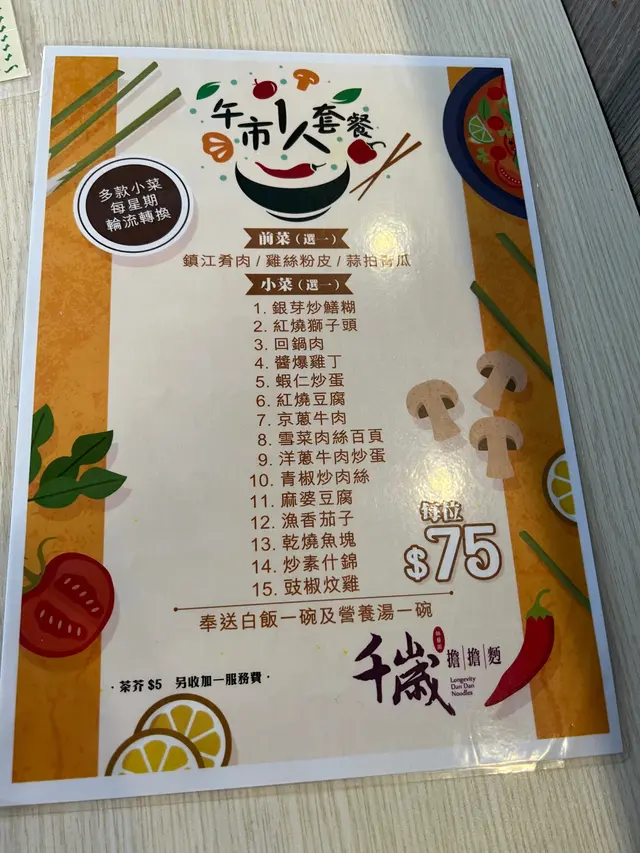 午市1人套餐
多款小菜
每星期
輪流轉換
前菜(選一)
鎮江肴肉/雞絲粉皮/蒜拍青瓜
小菜(選一)
1. 銀芽炒鱔糊
2. 紅燒獅子頭
3. 回鍋肉
4. 醬爆雞丁
5. 蝦仁炒蛋
6. 紅燒豆腐
7. 京蔥牛肉
8. 雪菜肉絲百頁
9. 洋蔥牛肉炒蛋
10. 青椒炒肉絲
11. 麻婆豆腐
12. 漁香茄子
13. 乾燒魚塊
14. 炒素什錦
15. 豉椒炆雞
每位
$75
奉送白飯一碗及營養湯一碗
·茶芥 $5 另收加一服務費·
千歲
擔擔麵
Longevity
Dan Dan
Noodles